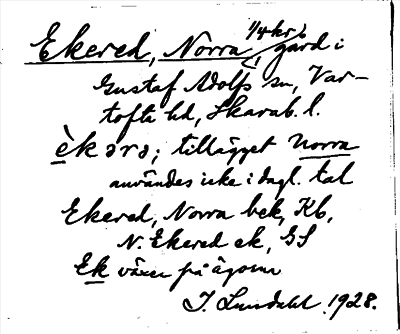 Ekered, Norra, 1/4 kr, gård i
Gustaf Adolfs sn, Var-
tofta hd, Skarab. l.
èkərə; tillägget Norra
användes icke i dagl. tal
Ekered, Norra bek, Kb,
N. Ekered ek, GS
Ek växer på ägorna
J. Lundahl 1928.